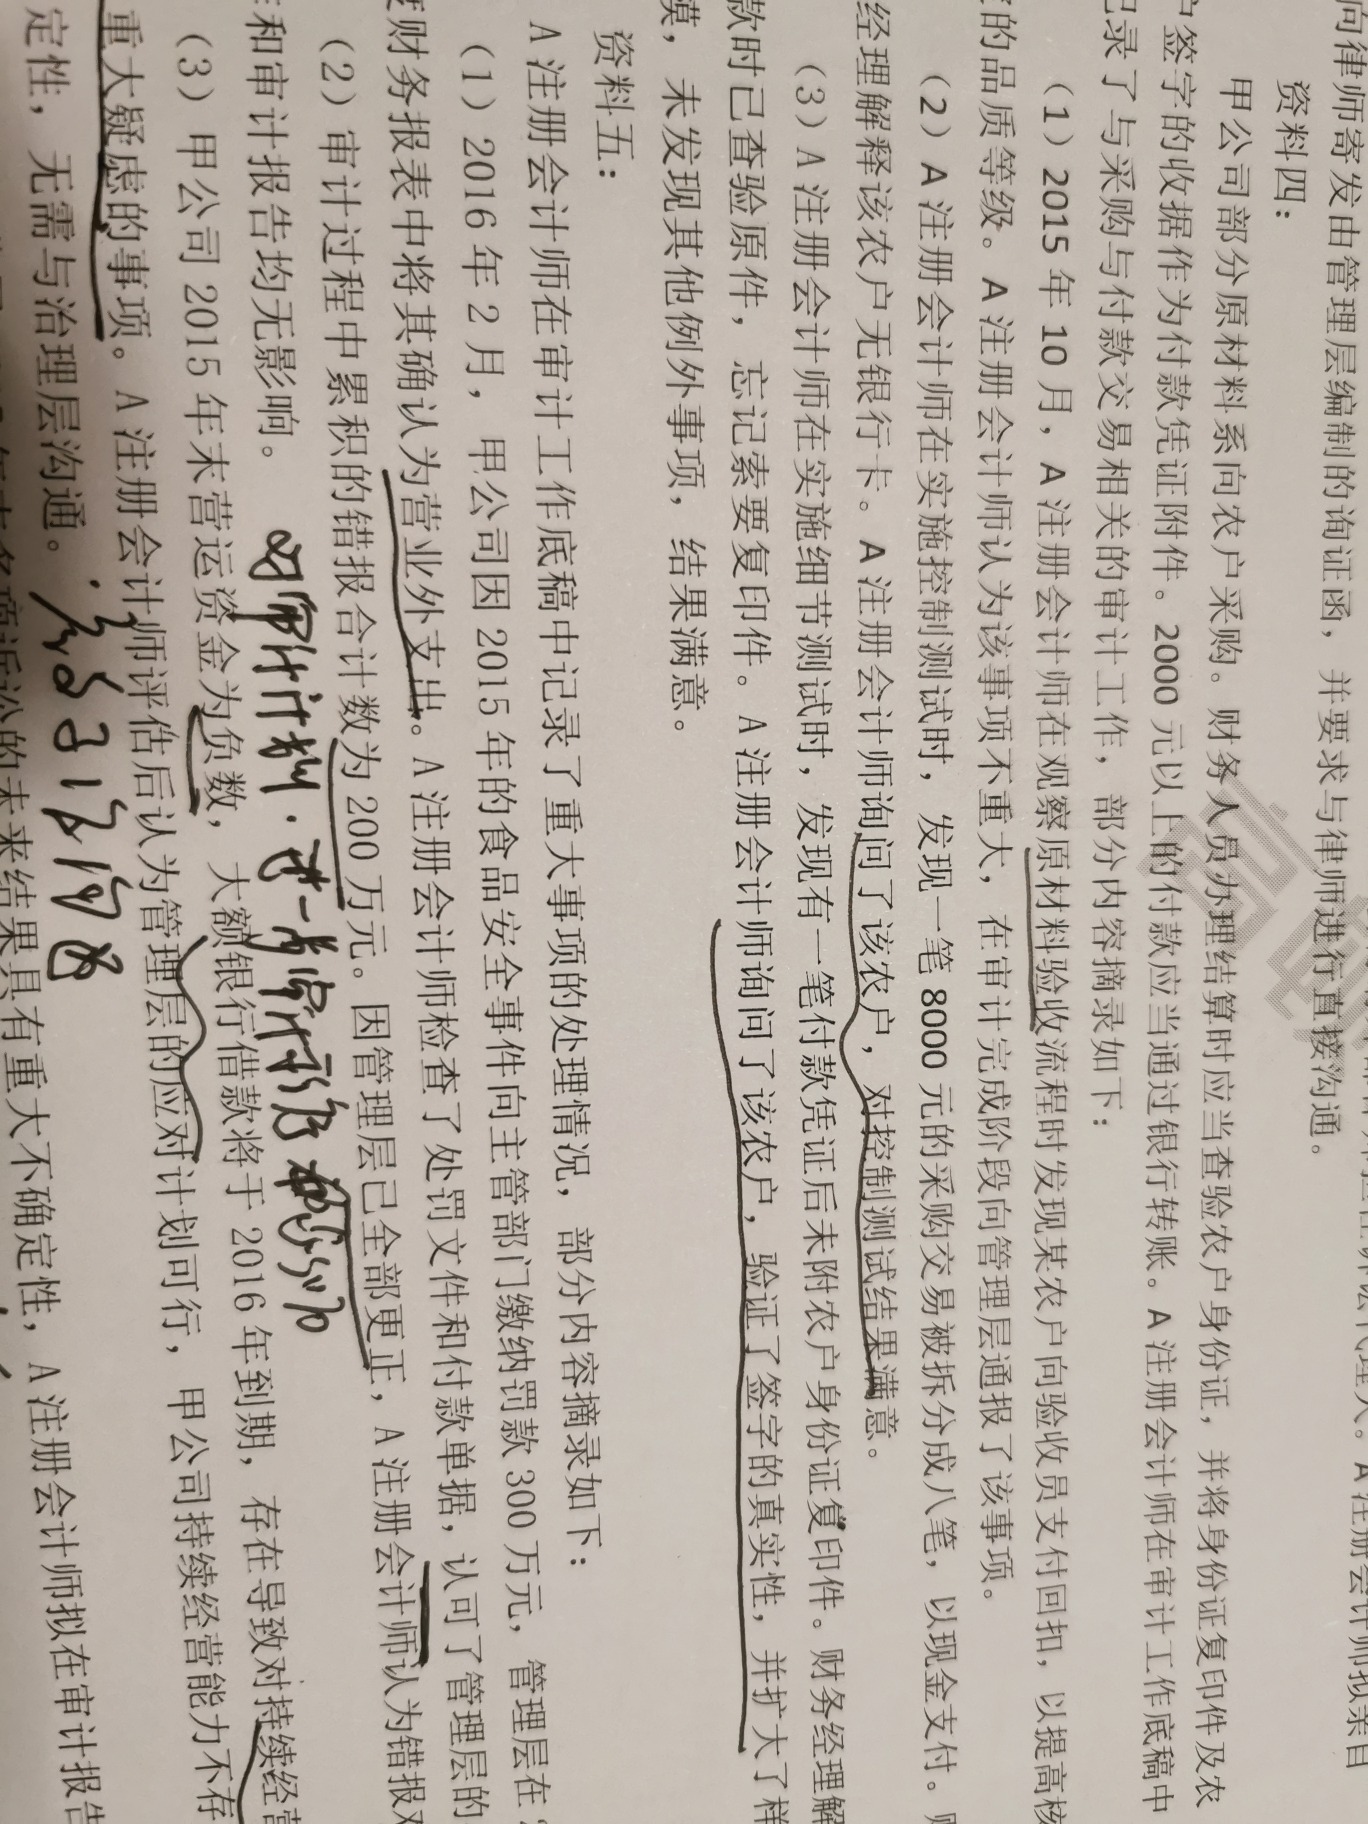 向律师寄发由管理层编制的询证函，并要求与律师进行直接沟通。
资料四：
甲公司部分原材料系向农户采购。财务人员办理结算时应当查验农户身份证，并将身份证复印件及农
户签字的收据作为付款凭证附件。2000元以上的付款应当通过银行转账。A注册会计师在审计工作底稿中
记录了与采购与付款交易相关的审计工作，部分内容摘录如下：
（1）2015年10月，A注册会计师在观察原材料验收流程时发现某农户向验收员支付回扣，以提高核
的品质等级。A注册会计师认为该事项不重大，在审计完成阶段向管理层通报了该事项。
（2）A注册会计师在实施控制测试时，发现一笔8000元的采购交易被拆分成八笔，以现金支付。财
经理解释该农户无银行卡。A注册会计师询问了该农户，对控制测试结果满意。
（3）A注册会计师在实施细节测试时，发现有一笔付款凭证后未附农户身份证复印件。财务经理解
款时已查验原件，忘记索要复印件。A注册会计师询问了该农户，验证了签字的真实性，并扩大了样
，未发现其他例外事项，结果满意。
资料五：
A注册会计师在审计工作底稿中记录了重大事项的处理情况，部分内容摘录如下：
（1）2016年2月，甲公司因2015年的食品安全事件向主管部门缴纳罚款300万元，管理层在
度财务报表中将其确认为营业外支出。A注册会计师检查了处罚文件和付款单据，认可了管理层的
（2）审计过程中累积的错报合计数为200万元。因管理层已全部更正，A注册会计师认为错报对
和审计报告均无影响。
（3）甲公司2015年末营运资金为负数，大额银行借款将于2016年到期，存在导致对持续经营
重大疑虑的事项。A注册会计师评估后认为管理层的应对计划可行，甲公司持续经营能力不存
定性，无需与治理层沟通。
诉讼的未来结果具有重大不确定性，A注册会计师拟在审计报告